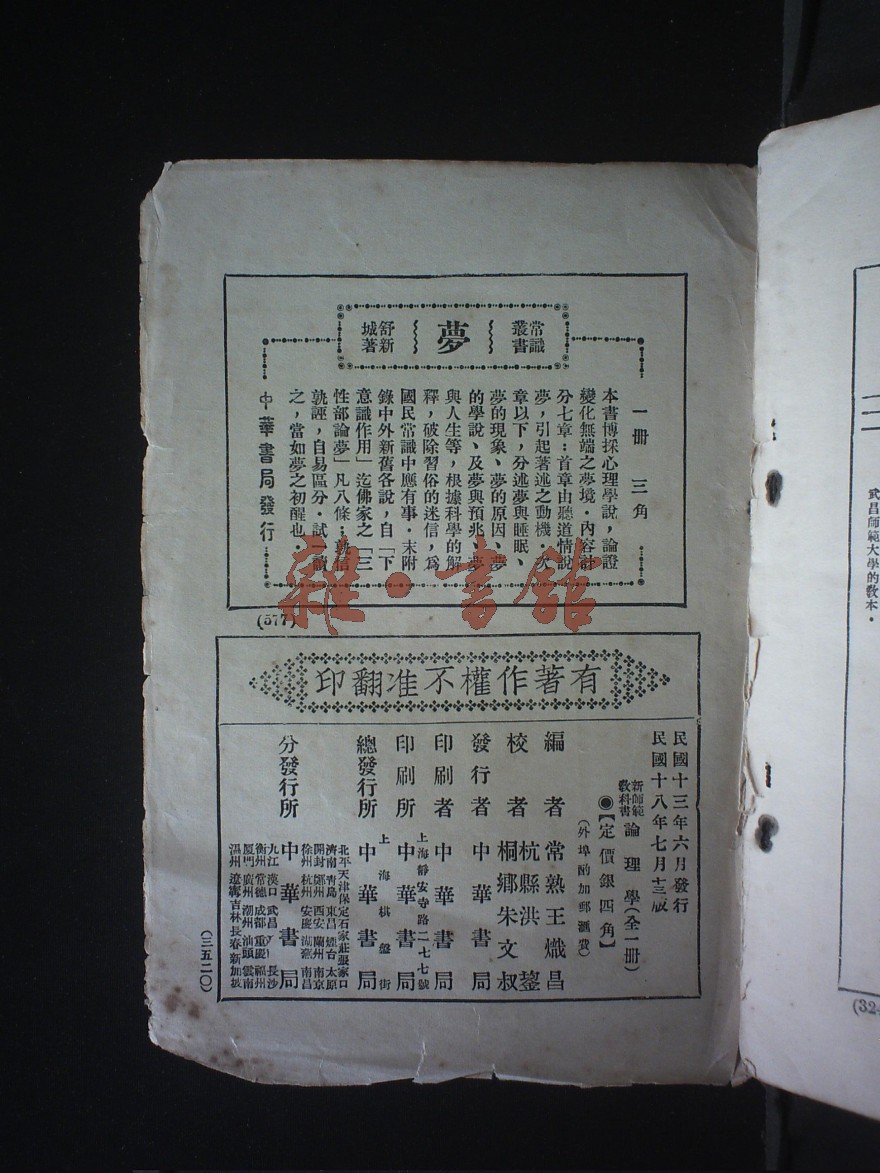 常識叢書
夢
舒新城著
一冊 三角
本書博採心理學說，論證
變化無端之夢境．內容計
分七章：首章由聽道情說
夢，引起著述之動機．次
章以下，分述夢與睡眠、
夢的現象、夢的原因、夢
的學說、及夢與預兆、夢
與人生等，根據科學的解
釋，破除習俗的迷信，爲
國民常識中應有事．末附
錄中外新舊各說，自「下
意識作用」迄佛家之「三
性部論夢」凡八條；孰信
孰誣，自易區分．試一讀
之，當如夢之初醒也．
中華書局發行
(577)
有著作權不准翻印
民國十三年六月發行
民國十八年七月十三版
新師範教科書 論理學(全一冊)
◉【定價銀四角】
(外埠酌加郵匯費)
編者 常熟王熾昌
校者 杭縣洪鋆
桐鄉朱文叔
發行者 中華書局
印刷者 中華書局
印刷所 上海靜安寺路二七七號 中華書局
總發行所 上海棋盤街 中華書局
分發行所 中華書局
北平天津保定石家莊張家口
濟南青島東昌煙台太原
開封鄭州西安蘭州南京
徐州杭州安慶蕪湖南昌
九江漢口武昌長沙
衡州常德成都重慶福州
廈門廣州潮州汕頭雲南
溫州遼寧吉林長春新加坡
(三五二〇)
武昌師範大學的教本．
(324
雜·書館